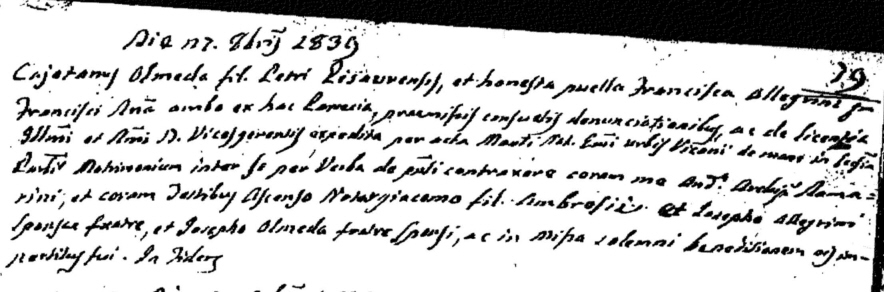 Die 27. 9bris 1839
79
Cajetanus Olmeda fil. Petri Pisaurensis, et honesta puella Francisca Allegrini qm
Francisci Rnã ambo ex hac Parœcia, præmissis consuetis denunciationibus, ac de licentia
Illmi et Rmi D. Vicesgerentis expedita per acta Not. Emi Urbis Vicarii de mane in Ecclesia
Matrimonium inter se per Verba de pnti contraxere coram me And.
rini, et coram Testibus Ascenso Notargiacomo fil. Ambrosii et Josepho Allegrini
Sponsæ fratre, et Josepho Olmeda fratre Sponsi, ac in Missa solemni benedictionem
pertitus fui. In Fidem